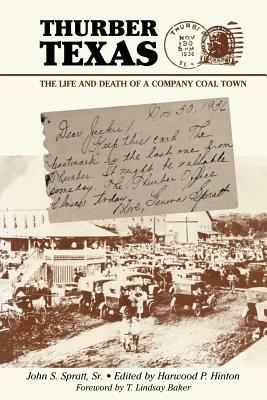 THURBER
TEXAS
THURB
NOV
30
5 PM
1936
THE LIFE AND DEATH OF A COMPANY COAL TOWN
Nov 30, 1936
Dear Jackie,
Keep this card. The
postmark is the last one from
Thurber. It might be valuable
someday. The Thurber Office
closes today.
Love, Geneva Spratt
John S. Spratt, Sr. • Edited by Harwood P. Hinton
Foreword by T. Lindsay Baker